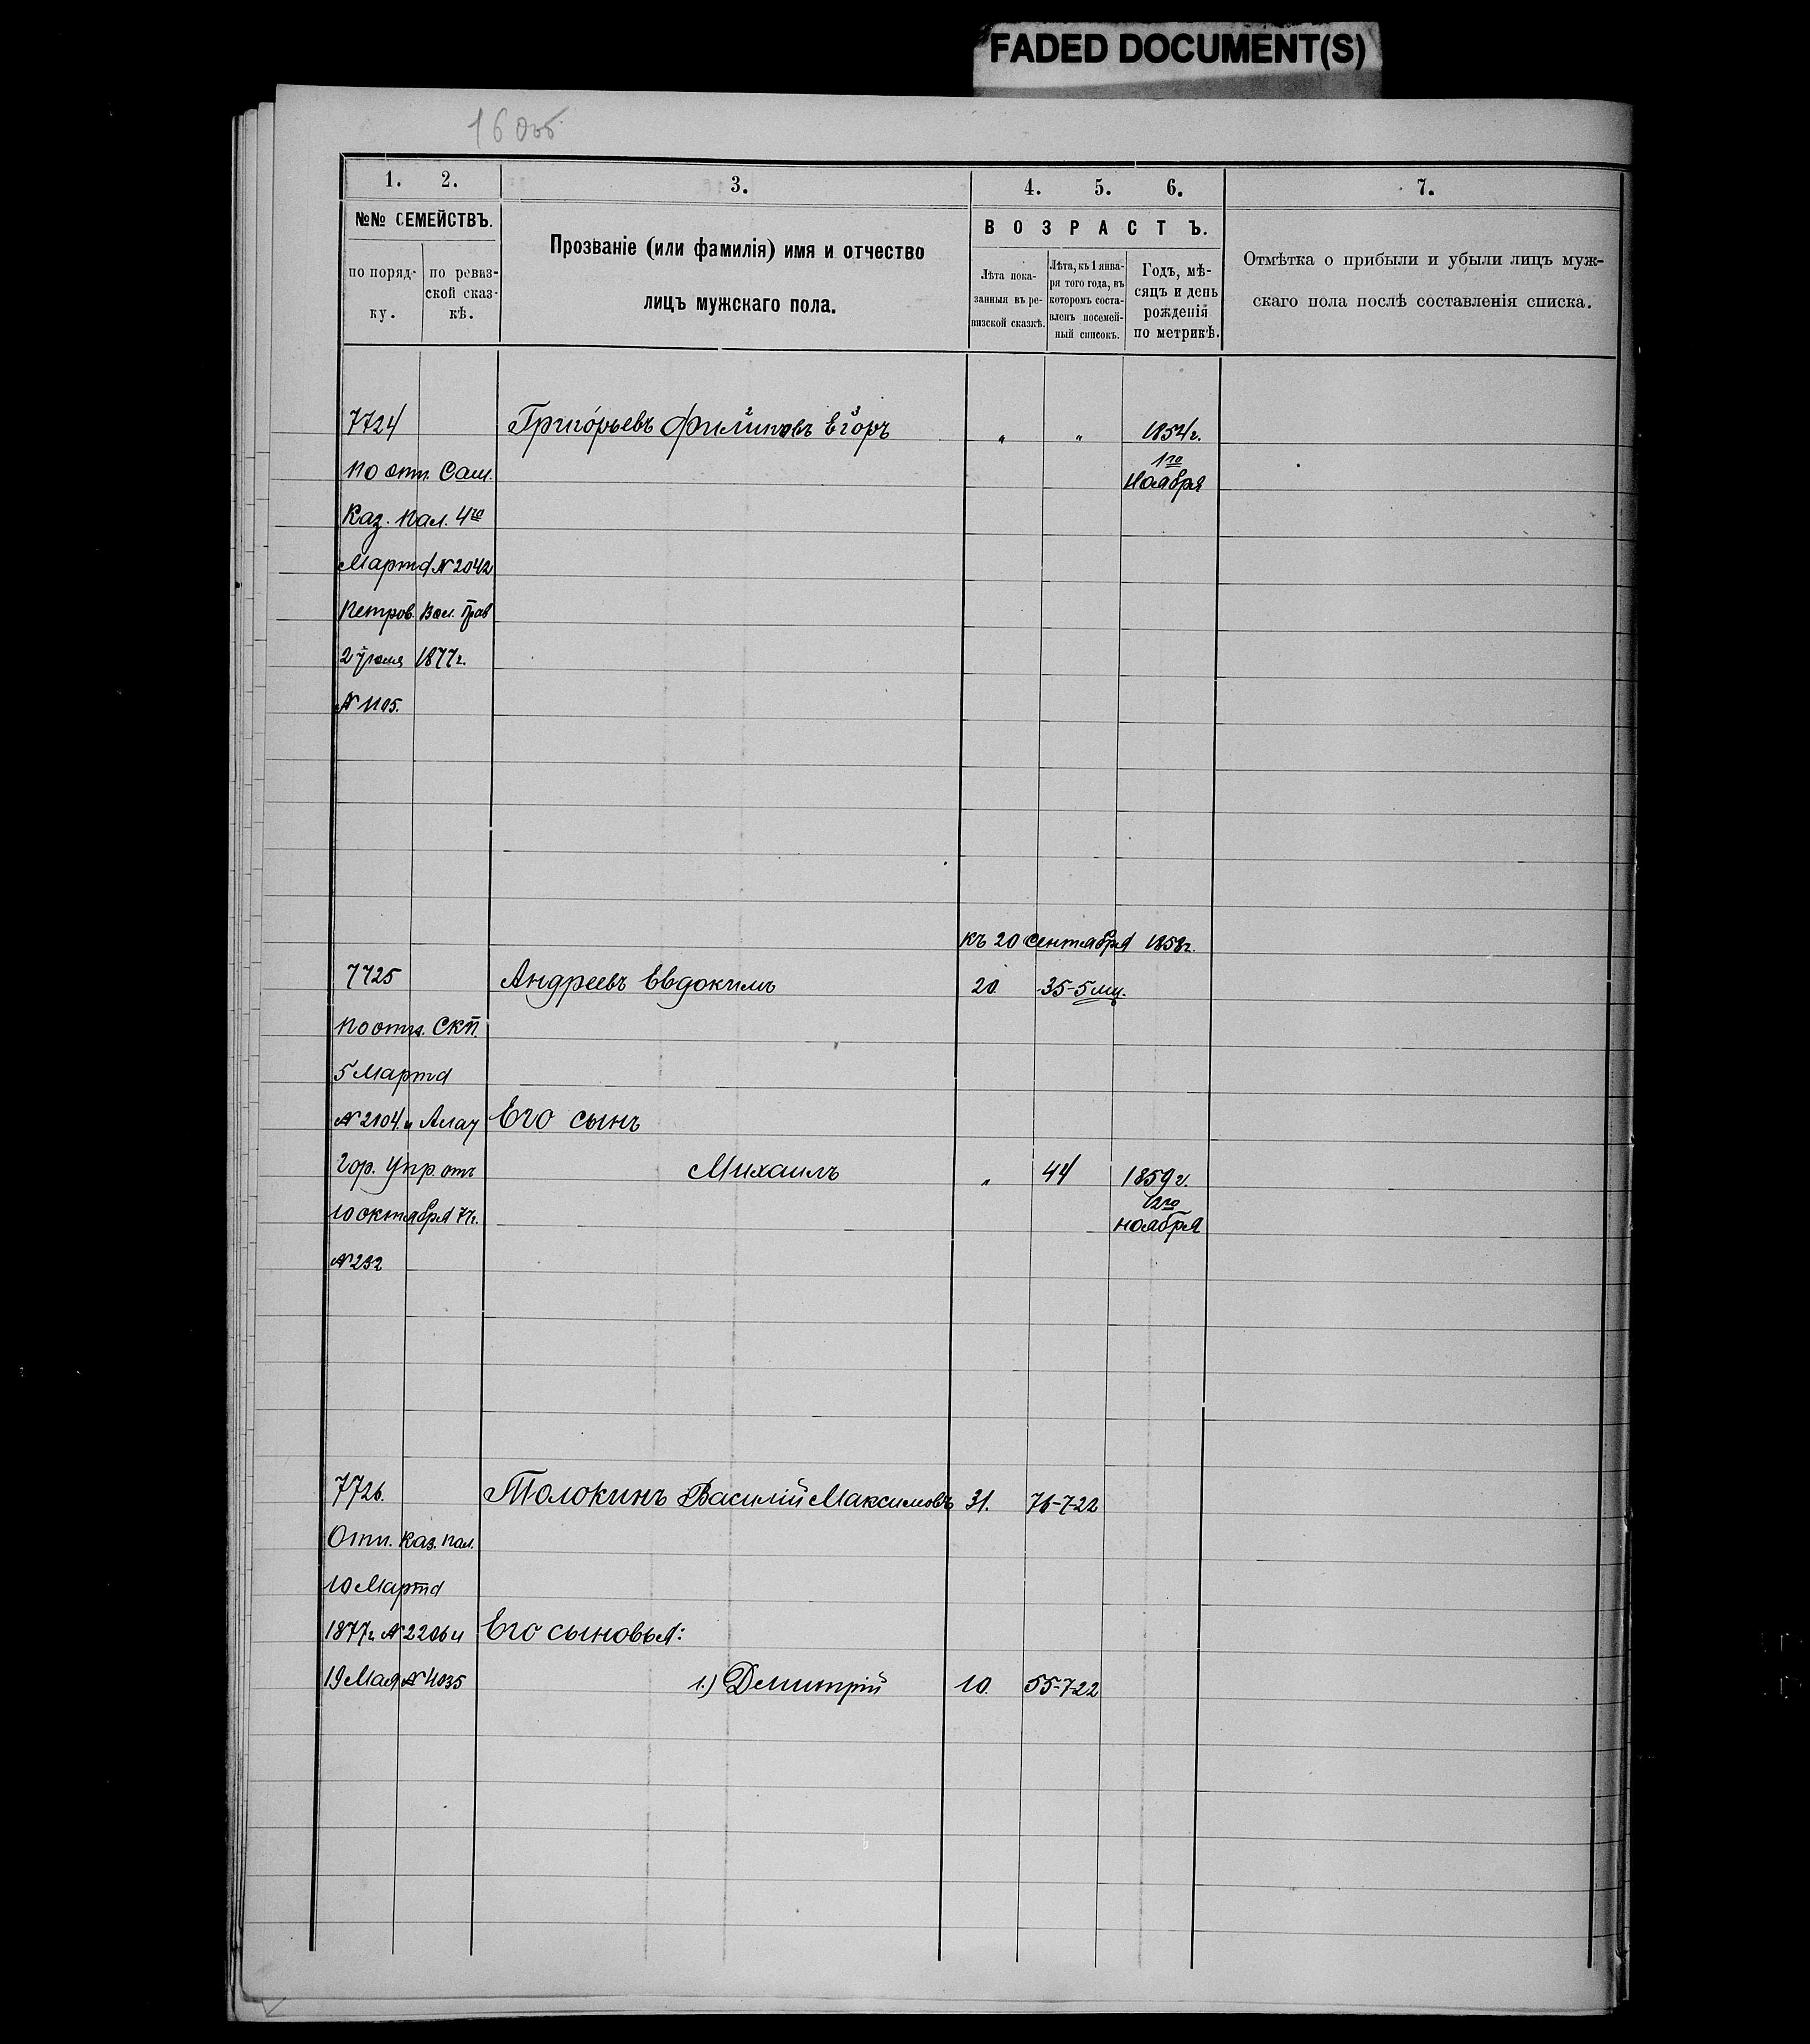 FADED DOCUMENT(S)
16 об.
1. 2. 3. 4. 5. 6. 7.
№№ СЕМЕЙСТВЪ.
по поряд-
ку.
по ревиз-
ской сказ-
кѣ.
Прозваніе (или фамилія) имя и отчество
лицъ мужскаго пола.
ВОЗРАСТЪ.
Лѣта пока-
занныя въ ре-
визской сказкѣ.
Лѣта, къ 1 янва-
ря того года, въ
которомъ соста-
вленъ посемей-
ный списокъ.
Годъ, мѣ-
сяцъ и день
рожденія
по метрикѣ.
Отмѣтка о прибыли и убыли лицъ муж-
скаго пола послѣ составленія списка.
7724 Григорьевъ Филиповъ 2 Егоръ 3 " " 1854 г.
1го
Ноября
по отн. Сам.
Каз. Пал. 4го
Марта № 2042
Петров. Вол. Прав
2 Іюля 1877 г.
№ 1105.
къ 20 сентября 1858 г.
7725 Андреевъ Евдокимъ 20. 35-5 мц.
по отн. СКП.
5 Марта
№ 2104. и Алат Его сынъ
Гор. Упр. отъ Михаилъ " 44 1859 г.
12го
ноября
10 октября 77 г.
№ 232
7726. Толокинъ Василій Максимовъ 31. 76-7-22
Отн. Каз. Пал.
10 Марта
1877 г. № 2206 и Его сыновья:
19 Мая № 4035 1.) Дмитрій 10. 55-7-22